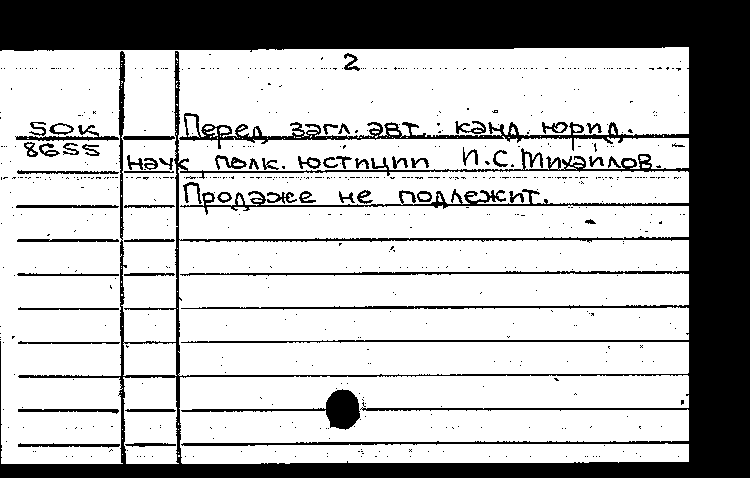 2
50К Перед загл. авт.: канд. юрид.
8655 наук, полк. юстиции И.С. Михайлов.
Продаже не подлежит.